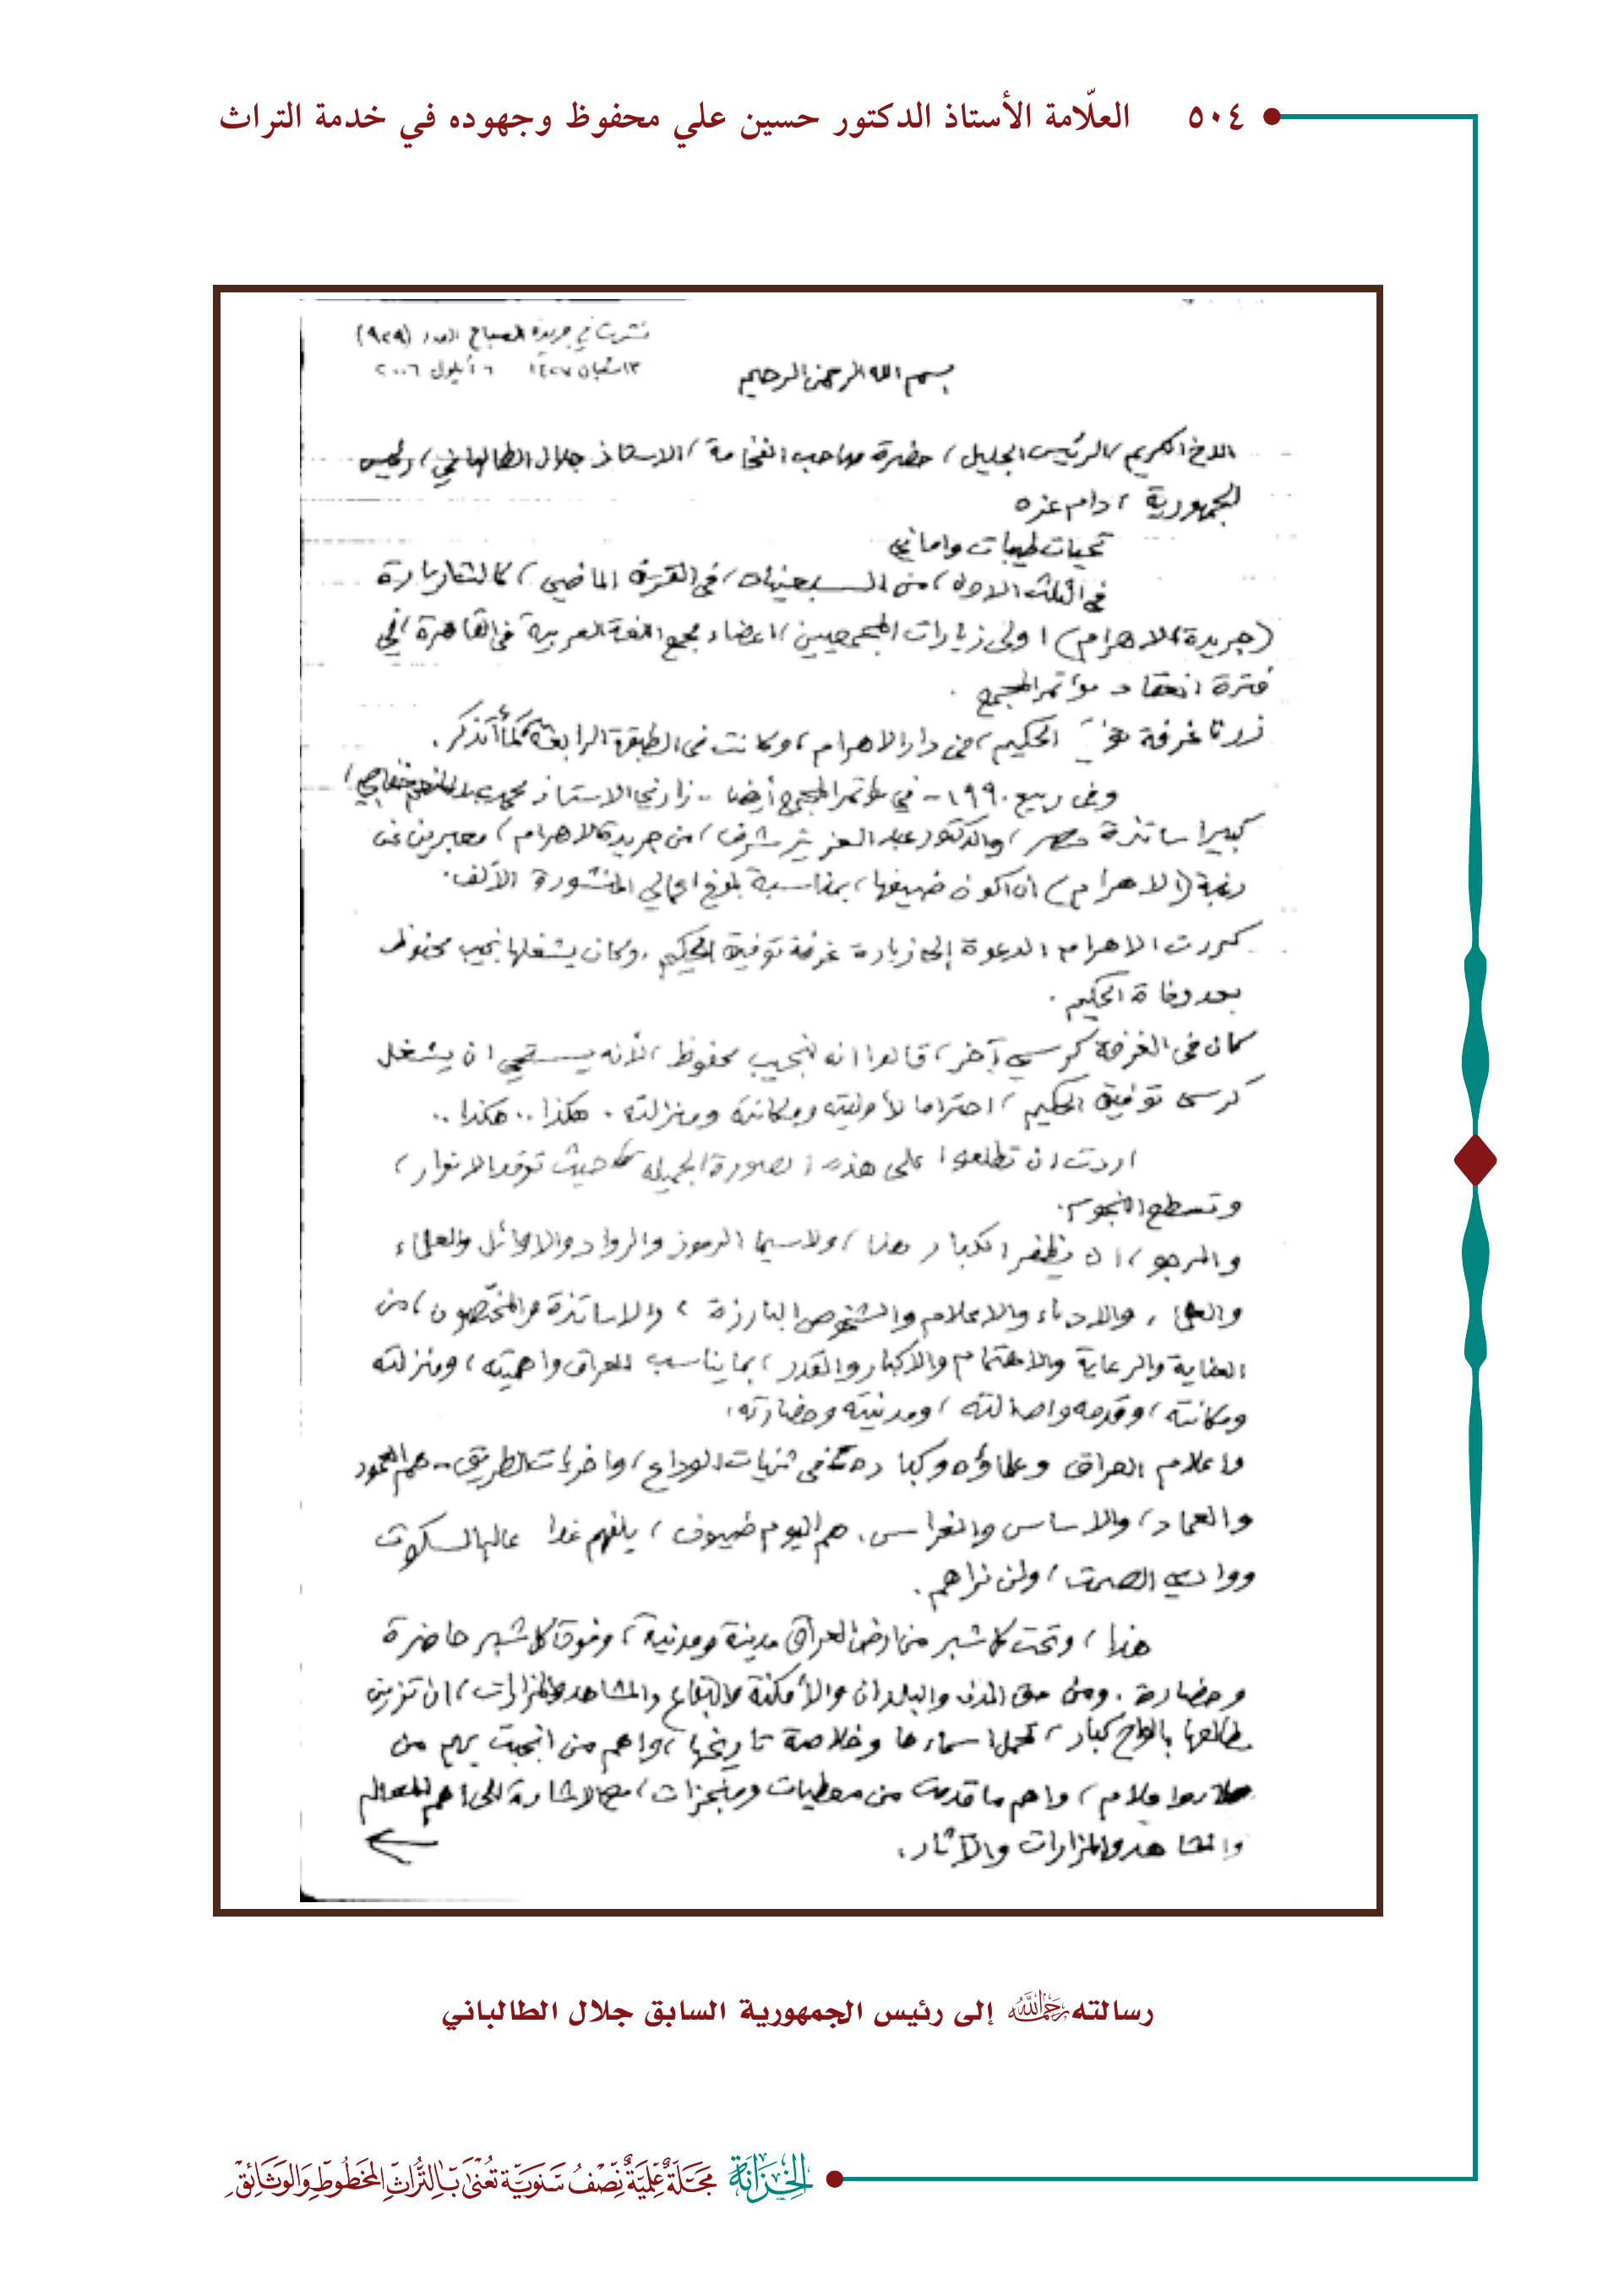 ٥٠٤ العلّامة الأستاذ الدكتور حسين علي محفوظ وجهوده في خدمة التراث
نشرت في جريدة الصباح العدد (٩٢٩)
١٣ شعبان ١٤٢٧ ٦ أيلول ٢٠٠٦
بسم الله الرحمن الرحيم
الاخ الكريم، الرئيس الجليل، حضرة صاحب الفخامة، الاستاذ جلال الطالباني، رئيس
الجمهورية، دام عزه
تحيات طيبات واماني
في الثلث الاول، من السبعينات، في القرن الماضي، كانت زيارة
(جريدة الاهرام) اولى زيارات المجمعيين، اعضاء مجمع اللغة العربية في القاهرة، في
فترة انعقاد مؤتمر المجمع.
زرنا غرفة الحكيم، في دار الاهرام، وكانت في الطبقة الرابعة كما أتذكر.
وفي ربيع ١٩٩٠ - في مؤتمر المجمع أيضا .. زارني الاستاذ محمد عبد المنعم خفاجي،
كبير اساتذة مصر، والدكتور عبد العزيز شرف، من جريدة الاهرام، معبرين عن
رغبة (الاهرام) أن اكون ضيفها، بمناسبة بلوغ اعمالي المنشورة الألف.
كررت الاهرام الدعوة إلى زيارة غرفة توفيق الحكيم، وكان يشغلها نجيب محفوظ
بعد وفاة الحكيم.
كان في الغرفة كرسي آخر، قالوا انه لنجيب محفوظ، لأنه يستحي ان يشغل
كرسي توفيق الحكيم، احتراما لأوليته ومكانته ومنزلته. هكذا.. هكذا..
اردت ان تطلعوا على هذه الصورة الجميلة حيث توقد الانوار،
وتسطع النجوم.
والمرجو، ان يظفر الكبار هنا، ولاسيما الرموز والرواد والاوائل والعلماء
والادباء والاعلام والشخوص البارزة، والاساتذة والمختصون، من
العناية والرعاية والاهتمام والاكبار والقدر، بما يناسب العراق واهميته، ومنزلته
ومكانته، وقدمه واصالته، ومدنيته وحضارته،
واعلام العراق وعلماؤه وكباره في ثنيات الوداع، واخريات الطريق.. هم العمود
والعماد، والاساس والغراس. هم اليوم ضيوف، يلفهم غدا عالم السكوت
ووادي الصمت، ولن نراهم.
هذا، وتحت كل شبر من ارض العراق مدينة ومدنية، وفوق كل شبر حاضرة
وحضارة. ومن حق المدن والبلدان والأمكنة والبقاع والمشاهد والمزارات، ان تزين
مطالعها بألواح كبار، تحمل اسماءها وخلاصة تاريخها، واهم من انجبت بهم من
واعلام، واهم ما قدمت من معطيات ومنجزات، مع الاشارة الى اهم المعالم
والمشاهد والمزارات والآثار.
رسالته رحمه الله إلى رئيس الجمهورية السابق جلال الطالباني
الخزانة مجلة علمية نصف سنوية تعنى بالتراث المخطوط والوثائق